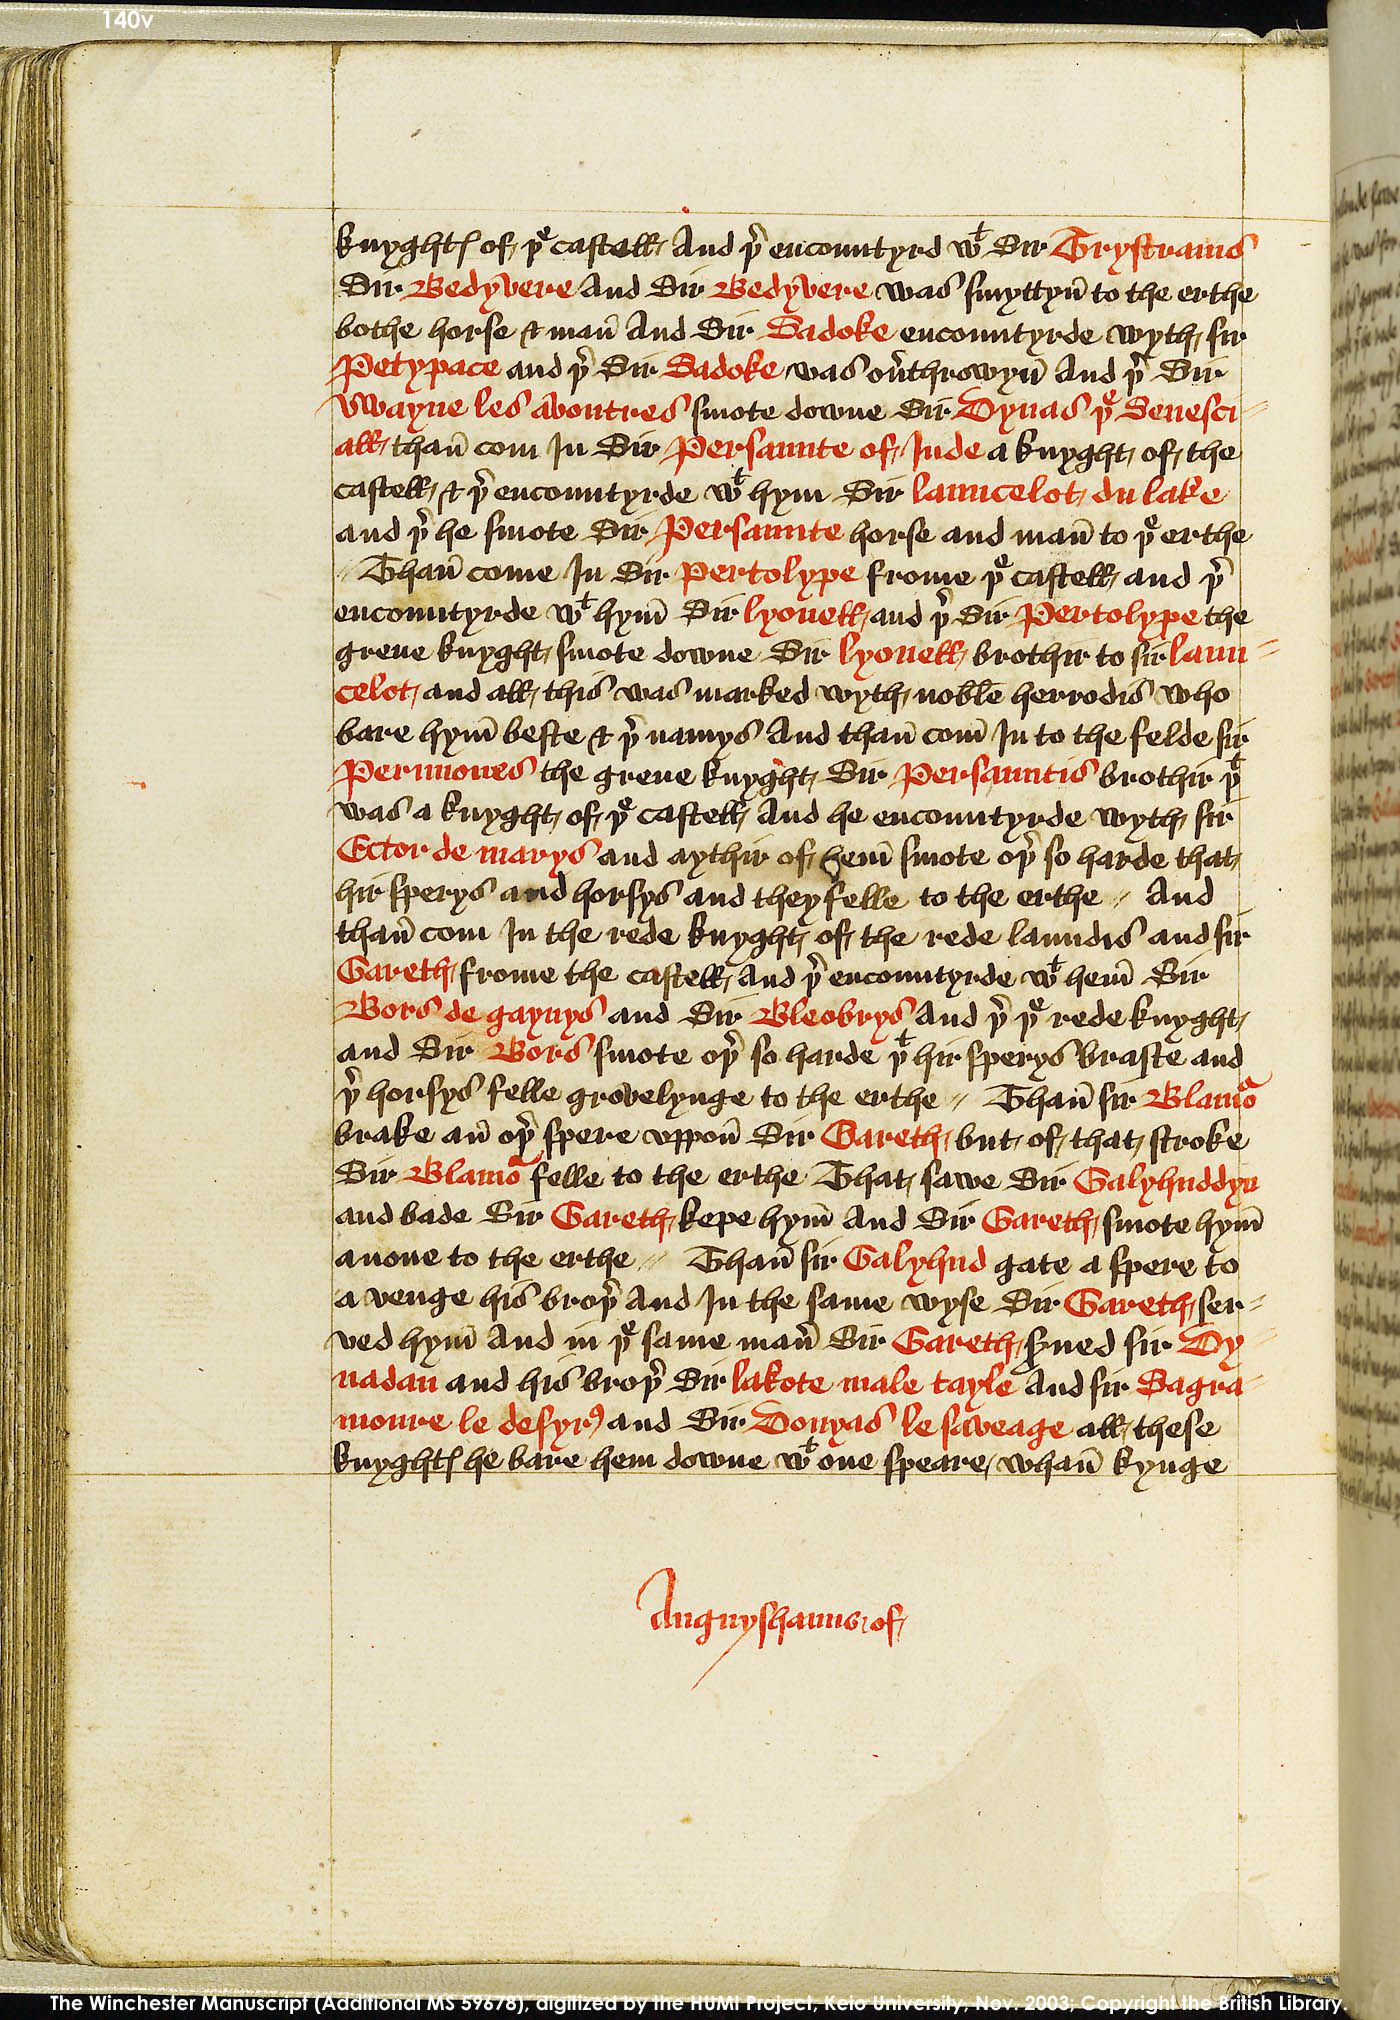 140v
knyghtꝭ of þe castell And þr encountyrd wt Sir Trystrams
Sir Bedyvere And Sir Bedyvere was smyttyn̄ to the erthe
bothe horse & man̄ And Sir Sadoke encountyrde wyth sir
Petypace and þr Sir Sadoke was ou̓throwyn̄ And þr Sir
Vwayne les Avoutres smote downe Sir Dynas þe Senesci=
all than̄ com In Sir Persaunte of Inde a knyght of the
castell & þr encountyrde wt hym Sir launcelot du lake
and þr he smote Sir Persaunte horse and man̄ to þe erthe
// Than̄ come In Sir Pertolype frome þe castell and þr
encountyrde wt hym̄ Sir lyonell and þr Sir Pertolype the
grene knyght smote downe Sir lyonell brothir to sir laun=
celot and all this was marked wyth noble herrodis who
bare hym̄ beste & þr namys And than̄ com̄ In to the felde sir
Perimones the grene knyght Sir Persauntis brothir þt
was a knyght of þe castell And he encountyrde wyth sir
Ector de marys and aythir of hem̄ smote oþr so harde that
hir sperys and horsys and they felle to the erthe // And
than̄ com In the rede knyght of the rede laundis and sir
Gareth frome the castell And þr encountyrde wt hem̄ Sir
Bors de gaynys and Sir Bleobrys And þr þe rede knyght
and Sir Bors smote oþr so harde þt hir sperys braste and
þr horsys felle grovelynge to the erthe // Than̄ sir Blamor
brake an̄ oþr spere vppon̄ Sir Gareth but of that stroke
Sir Blamor felle to the erthe That sawe Sir Galyhuddyn
and bade Sir Gareth kepe hym̄ And Sir Gareth smote hym̄
anone to the erthe // Than̄ sir Galyhud gate a spere to
a venge his broþr And In the same wyse Sir Gareth ser=
ved hym̄ And in þe same man̓ Sir Gareth s̓ued sir Dy=
nadan and his broþr Sir lakote male tayle And sir Sagra=
moure le desyrꝰ and Sir Donyas le saveage all these
knyghtꝭ he bare hem downe wt one speare whan̄ kynge
Anguyshauns of
The Winchester Manuscript (Additional MS 59678), digitized by the HUMI Project, Keio University, Nov. 2003; Copyright the British Library.